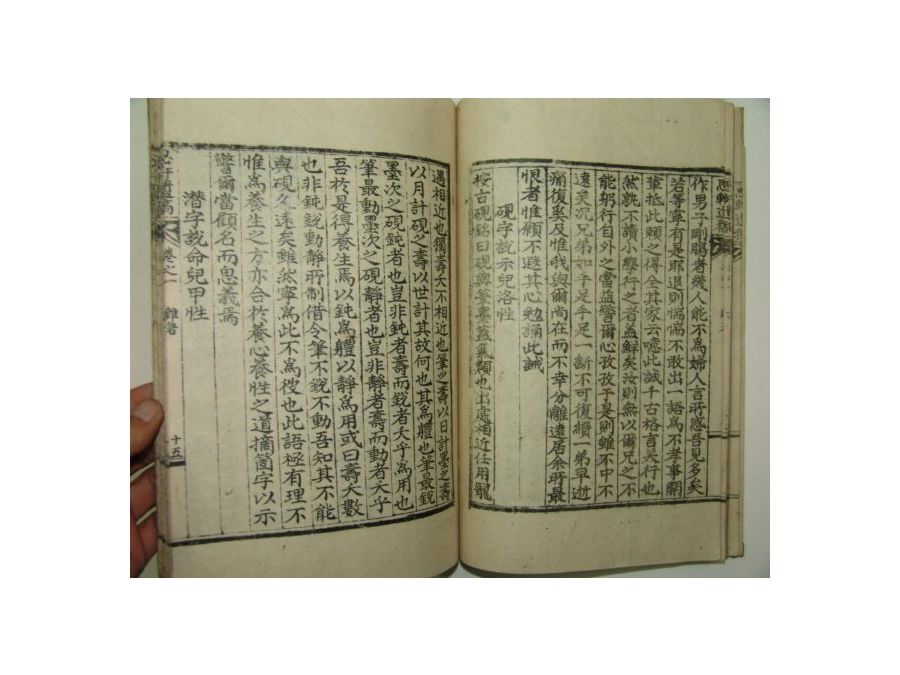 作男子剛腸者幾人能不爲婦人言所惑吾見多矣
若等寧有是耶退則惴惴不敢出一語爲不孝事開
輩抵此賴之得全其家云噫此誡千古格言美行也
然孰不讀小學行之者蓋鮮矣汝則無以爾兄之不
能躬行自外之當益警爾心孜孜于是則雖不中不
遠矣況兄弟如手足手足一斷不可復續一弟早逝
痛復奚及惟我與爾尚在而不幸分離遠居余所最
恨者惟願不遐其心勉誦此誡
硯字說示兒洛性
按古硯銘曰硯與筆墨蓋氣類也出處相近任用寵
遇相近也獨壽夭不相近也筆之壽以日計墨之壽
以月計硯之壽以世計其故何也其爲體也筆最銳
墨次之硯鈍者也豈非鈍者壽而銳者夭乎爲用也
筆最動墨次之硯靜者也豈非靜者壽而動者夭乎
吾於是得養生焉以鈍爲體以靜爲用或曰壽夭數
也非鈍銳動靜所制借令筆不銳不動吾知其不能
與硯久遠矣雖然寧爲此不爲彼也此語極有理不
惟爲養生之方亦合於養心養性之道摘箇字以示
警爾當顧名而思義焉
潛字說命兒甲性
卷之一
雜著
十五